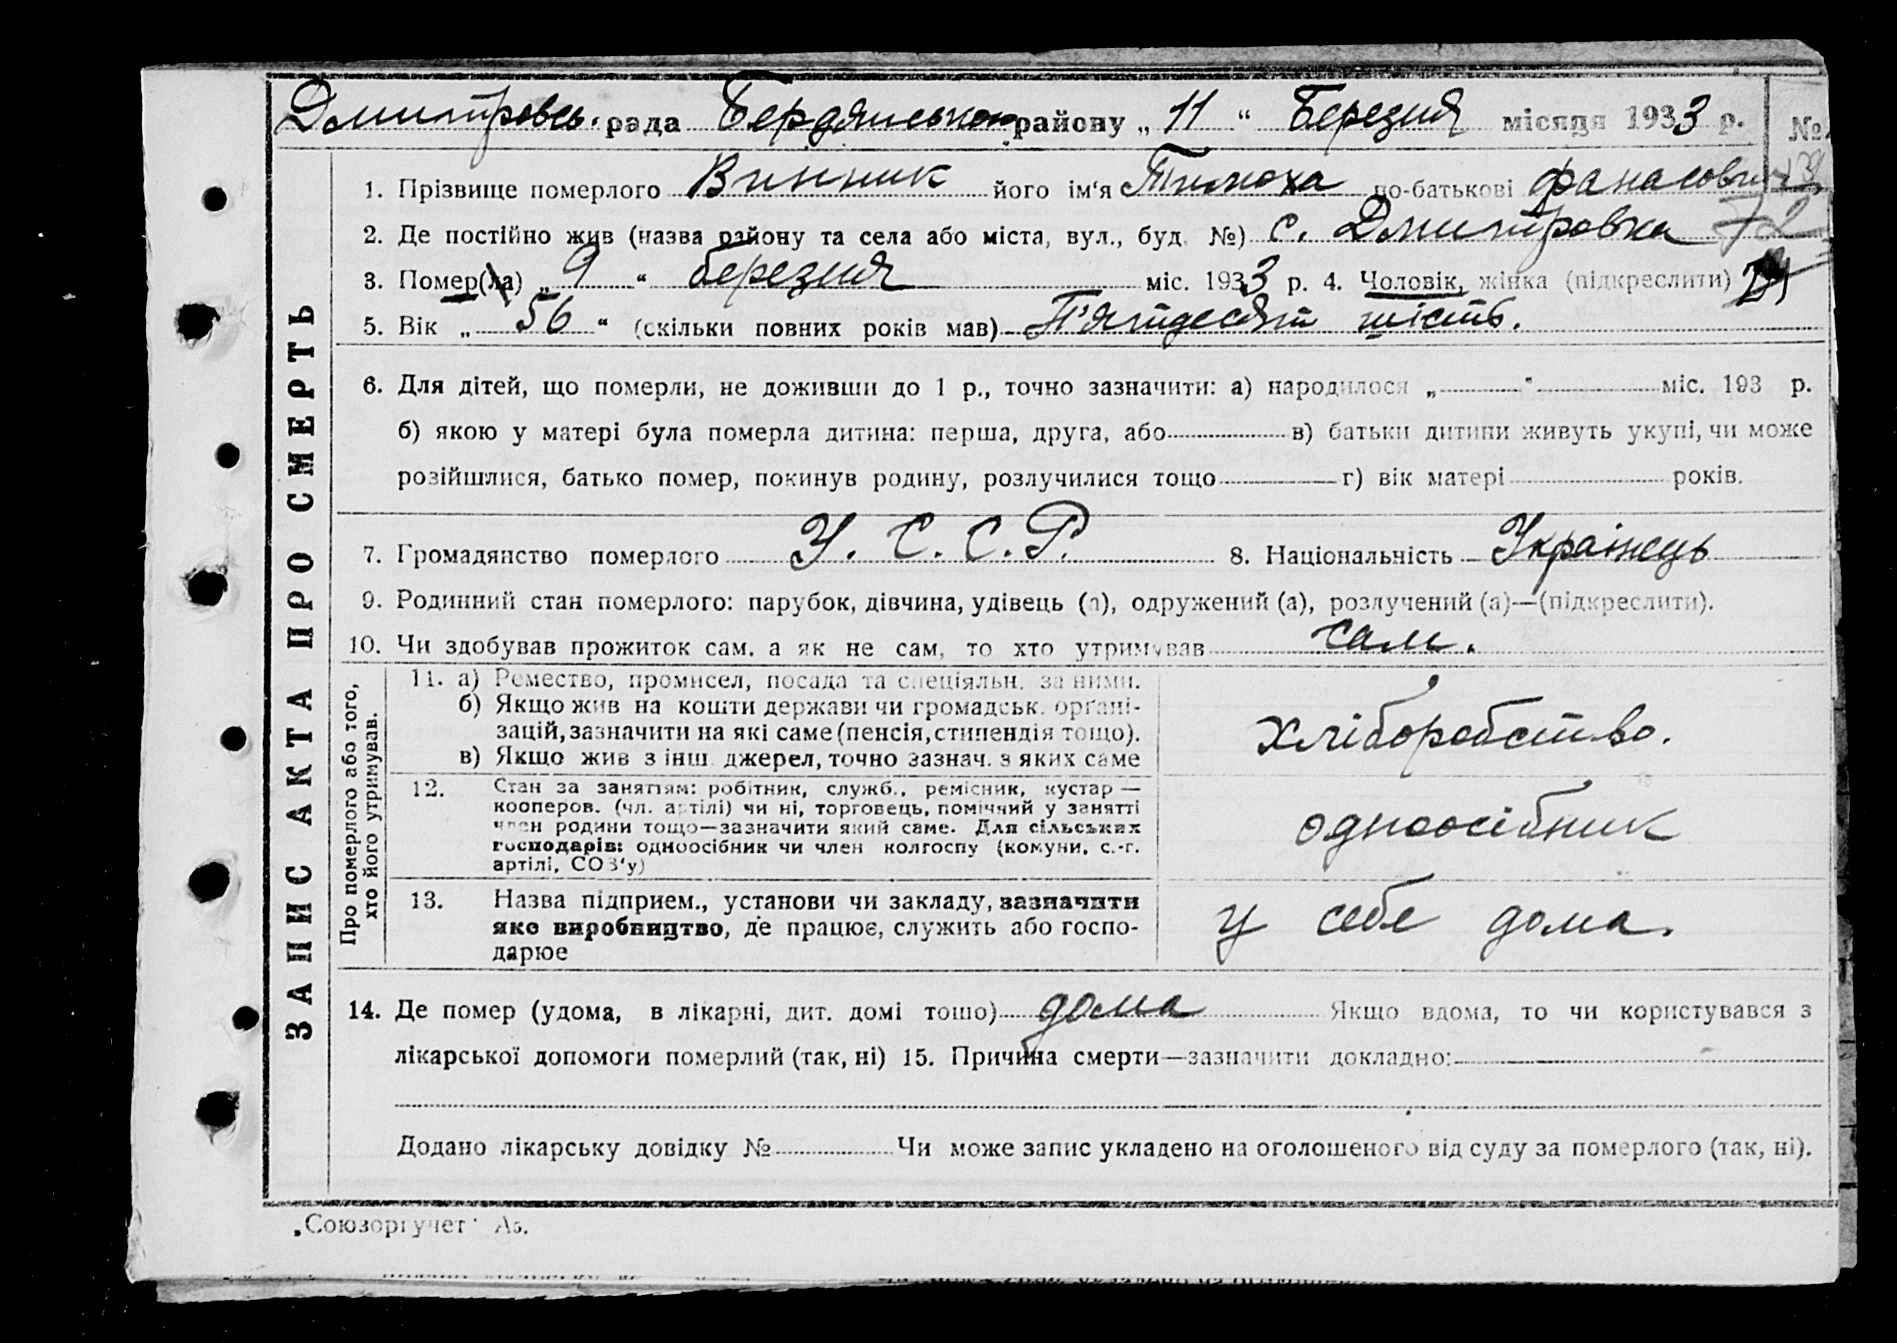 Дмитровсь. рада Бердянського району „ 11 “ Березня місяця 1933 р. №
1. Прізвище померлого Винник його ім'я Тимоха по-батькові Фанасович
2. Де постійно жив (назва району та села або міста, вул., буд. №) с. Дмитровка 72
3. Помер(ла) „ 9 “ березня міс. 1933 р. 4. Чоловік, жінка (підкреслити)
5. Вік „ 56 “ (скільки повних років мав) П'ятдесят шість.
6. Для дітей, що померли, не доживши до 1 р., точно зазначити: а) народилося „ “ міс. 193 р.
б) якою у матері була померла дитина: перша, друга, або в) батьки дитини живуть укупі, чи може
розійшлися, батько помер, покинув родину, розлучилися тощо г) вік матері років.
7. Громадянство померлого У. С. С. Р. 8. Національність Українець
9. Родинний стан померлого: парубок, дівчина, удівець (а), одружений (а), розлучений (а)—(підкреслити).
10. Чи здобував прожиток сам, а як не сам, то хто утримував сам.
ЗАПИС АКТА ПРО СМЕРТЬ
Про померлого або того,
хто його утримував.
11. а) Ремество, промисел, посада та спеціяльн. за ними.
б) Якщо жив на кошти держави чи громадськ. органі-
зацій, зазначити на які саме (пенсія, стипендія тощо).
в) Якщо жив з інш. джерел, точно зазнач. з яких саме
хліборобство.
12. Стан за заняттям: робітник, служб., ремісник, кустар —
кооперов. (чл. артілі) чи ні, торговець, помічний у занятті
член родини тощо—зазначити який саме. Для сільських
господарів: одноосібник чи член колгоспу (комуни, с.-г.
артілі, СОЗ'у)
одноосібник
13. Назва підприєм., установи чи закладу, зазначити
яке виробництво, де працює, служить або госпо-
дарює
у себе дома.
14. Де помер (удома, в лікарні, дит. домі тощо) дома Якщо вдома, то чи користувався з
лікарської допомоги померлий (так, ні) 15. Причина смерти—зазначити докладно:
Додано лікарську довідку № Чи може запис укладено на оголошеного від суду за померлого (так, ні).
„Союзоргучет“ А5.